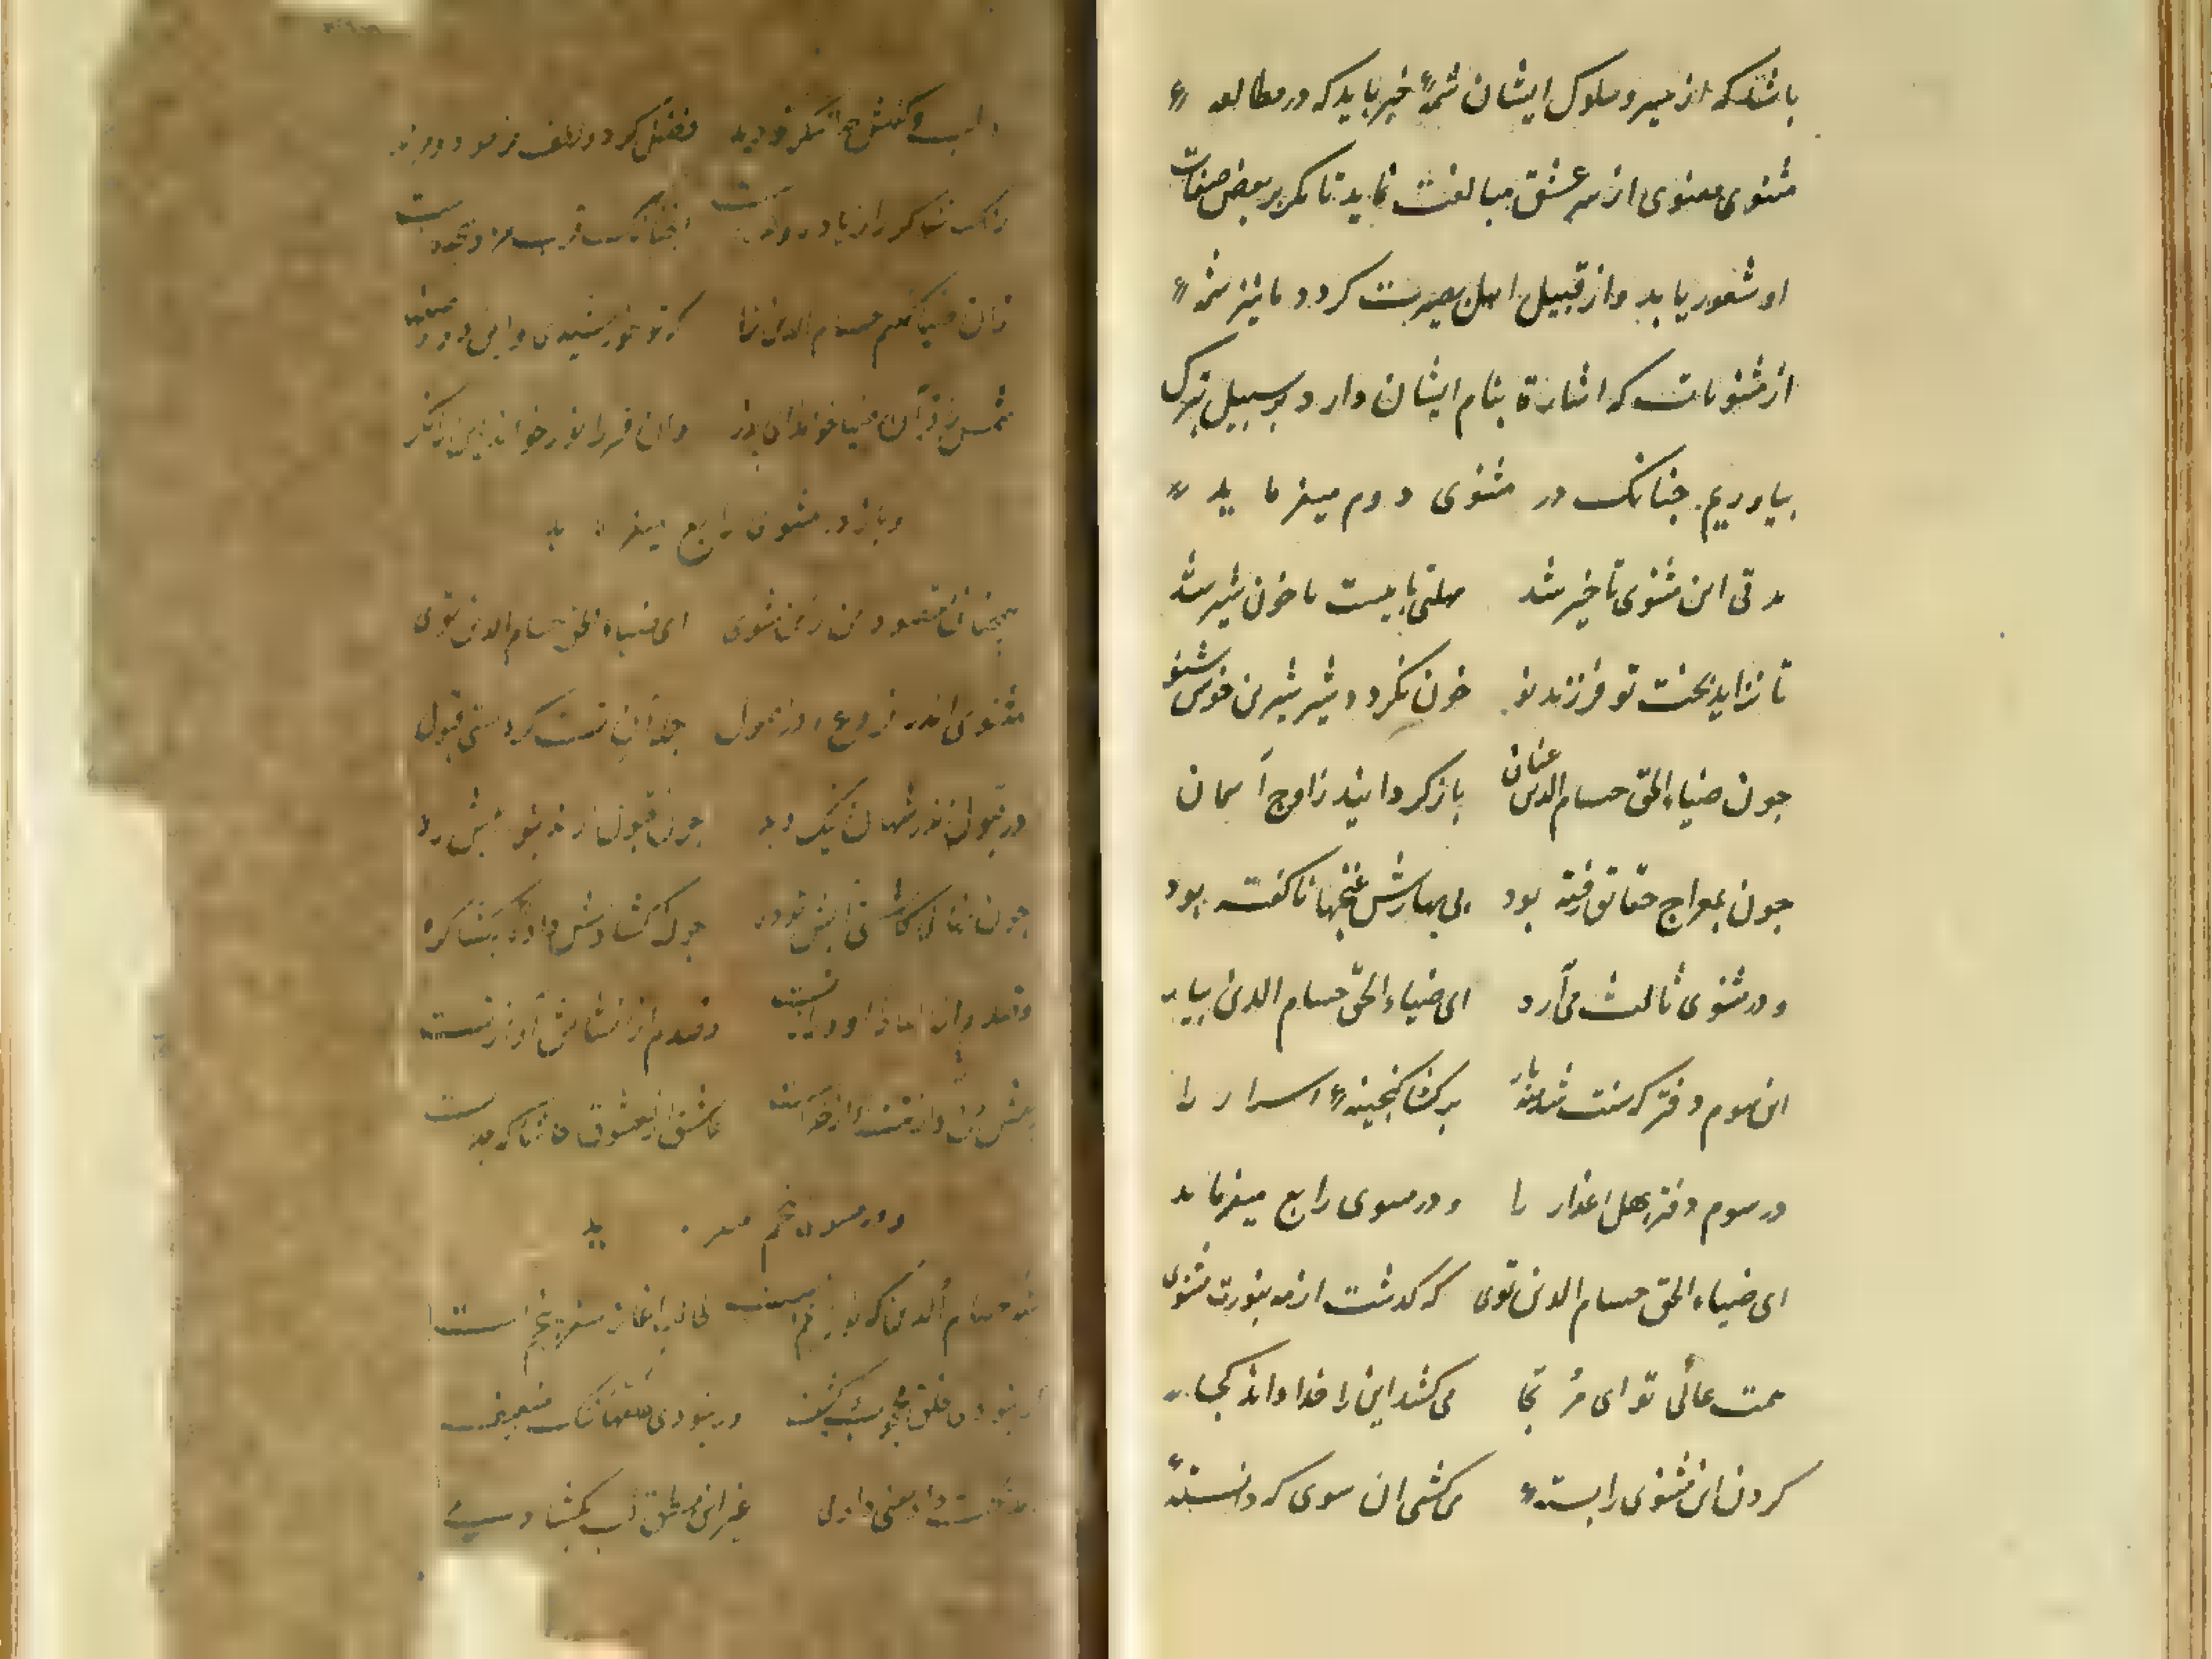 باشد که از سیر و سلوک ایشان شمهٔ خبر یابد که در مطالعهٔ
مثنوی معنوی از سر عشق مبالغت نماید تا مگر بر بعض صفات
او شعور یابد و از قبیل اهل بصیرت کردد ما نیز شمهٔ
از مثنویات که اشارة بنام ایشان دارد بر سبیل تبرک
بیاوریم جنانک در مثنوی دوم میفرماید
مدتی این مثنوی تاخیر شد مهلتی بایست تا خون شیر شد
تا نزاید بخت تو فرزند نو خون نکردد شیر شیرین خوش شنو
جون ضیاء الحق حسام الدین عنان باز کردانید ز اوج آسمان
جون بمعراج حقایق رفته بود بی بهارش غنجها ناکفته بود
و در مثنوی ثالث می آرد ای ضیاء الحق حسام الدین بیار
این سوم دفتر که سنت شد سه بار بر کشا کنجینهٔ اسرار را
در سوم دفتر بهل اعذار را و در مثنوی رابع میفرماید
ای ضیاء الحق حسام الدین توی که کذشت از مه بنورت مثنوی
همت عالی تو ای مرتجا می کشد این را خدا داند کجا
کردن این مثنوی را بستهٔ می کشی ان سوی که دانستهٔ
فضل کرد و لطف فرمود و
زانک شاکر را زیادت وعده است انجنانک قرب مزد سجده است
زان ضیا کفتم حسام الدین ترا که تو خورشیدی و این دو وصفها
شمس را قرآن ضیا خواند ای پدر و ان قمر را نور خواند این را نکر
و باز در مثنوی رابع میفرماید
همجنان مقصود من زین مثنوی ای ضیاء الحق حسام الدین توی
مثنوی اندر فروع و در اصول جمله آن تست کردستی قبول
در قبول آرند شهان نیک و بد جون قبول آرند نبود بیش رد
جون نهالی کاشتی آبش بده جون کشادش دادهٔ بکشا کره
قصدم از الفاظ او راز تست قصدم از انشایش آواز تست
بیش من آوازت آواز خداست عاشق از معشوق حاشا که جداست
و در مثنوی بنجم میفرماید
شه حسام الدین که نور انجم است طالب اغاز سفر بنجم است
کر نبودی خلق محجوب و کثیف ور نبودی حلقها تنک و ضعیف
در مدیحت داد معنی دادمی غیر این منطق لب بکشادمی